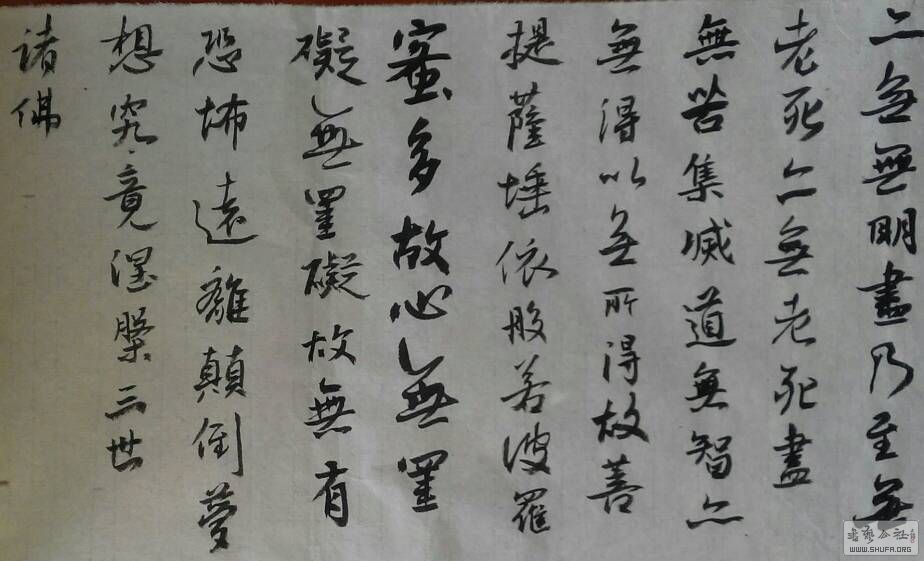 亦無無明盡乃至無
老死亦無老死盡
無苦集滅道無智亦
無得以無所得故菩
提薩埵依般若波羅
蜜多故心無罣
礙無罣礙故無有
恐怖遠離顛倒夢
想究竟涅槃三世
諸佛
书艺公社
WWW.SHUFA.ORG